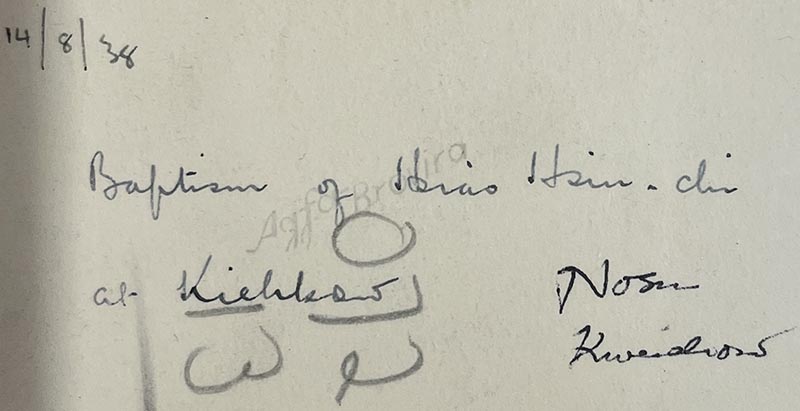 14/8/38
Baptism of Hsiao Hsin-chi
at Kiehkow Nosu
Kweichow